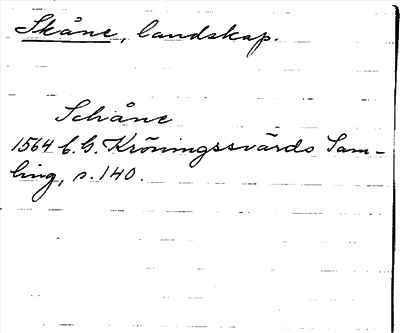 Skåne, landskap.
Schåne
1564 C. G. Kröningssvärds Sam-
ling, s. 140.